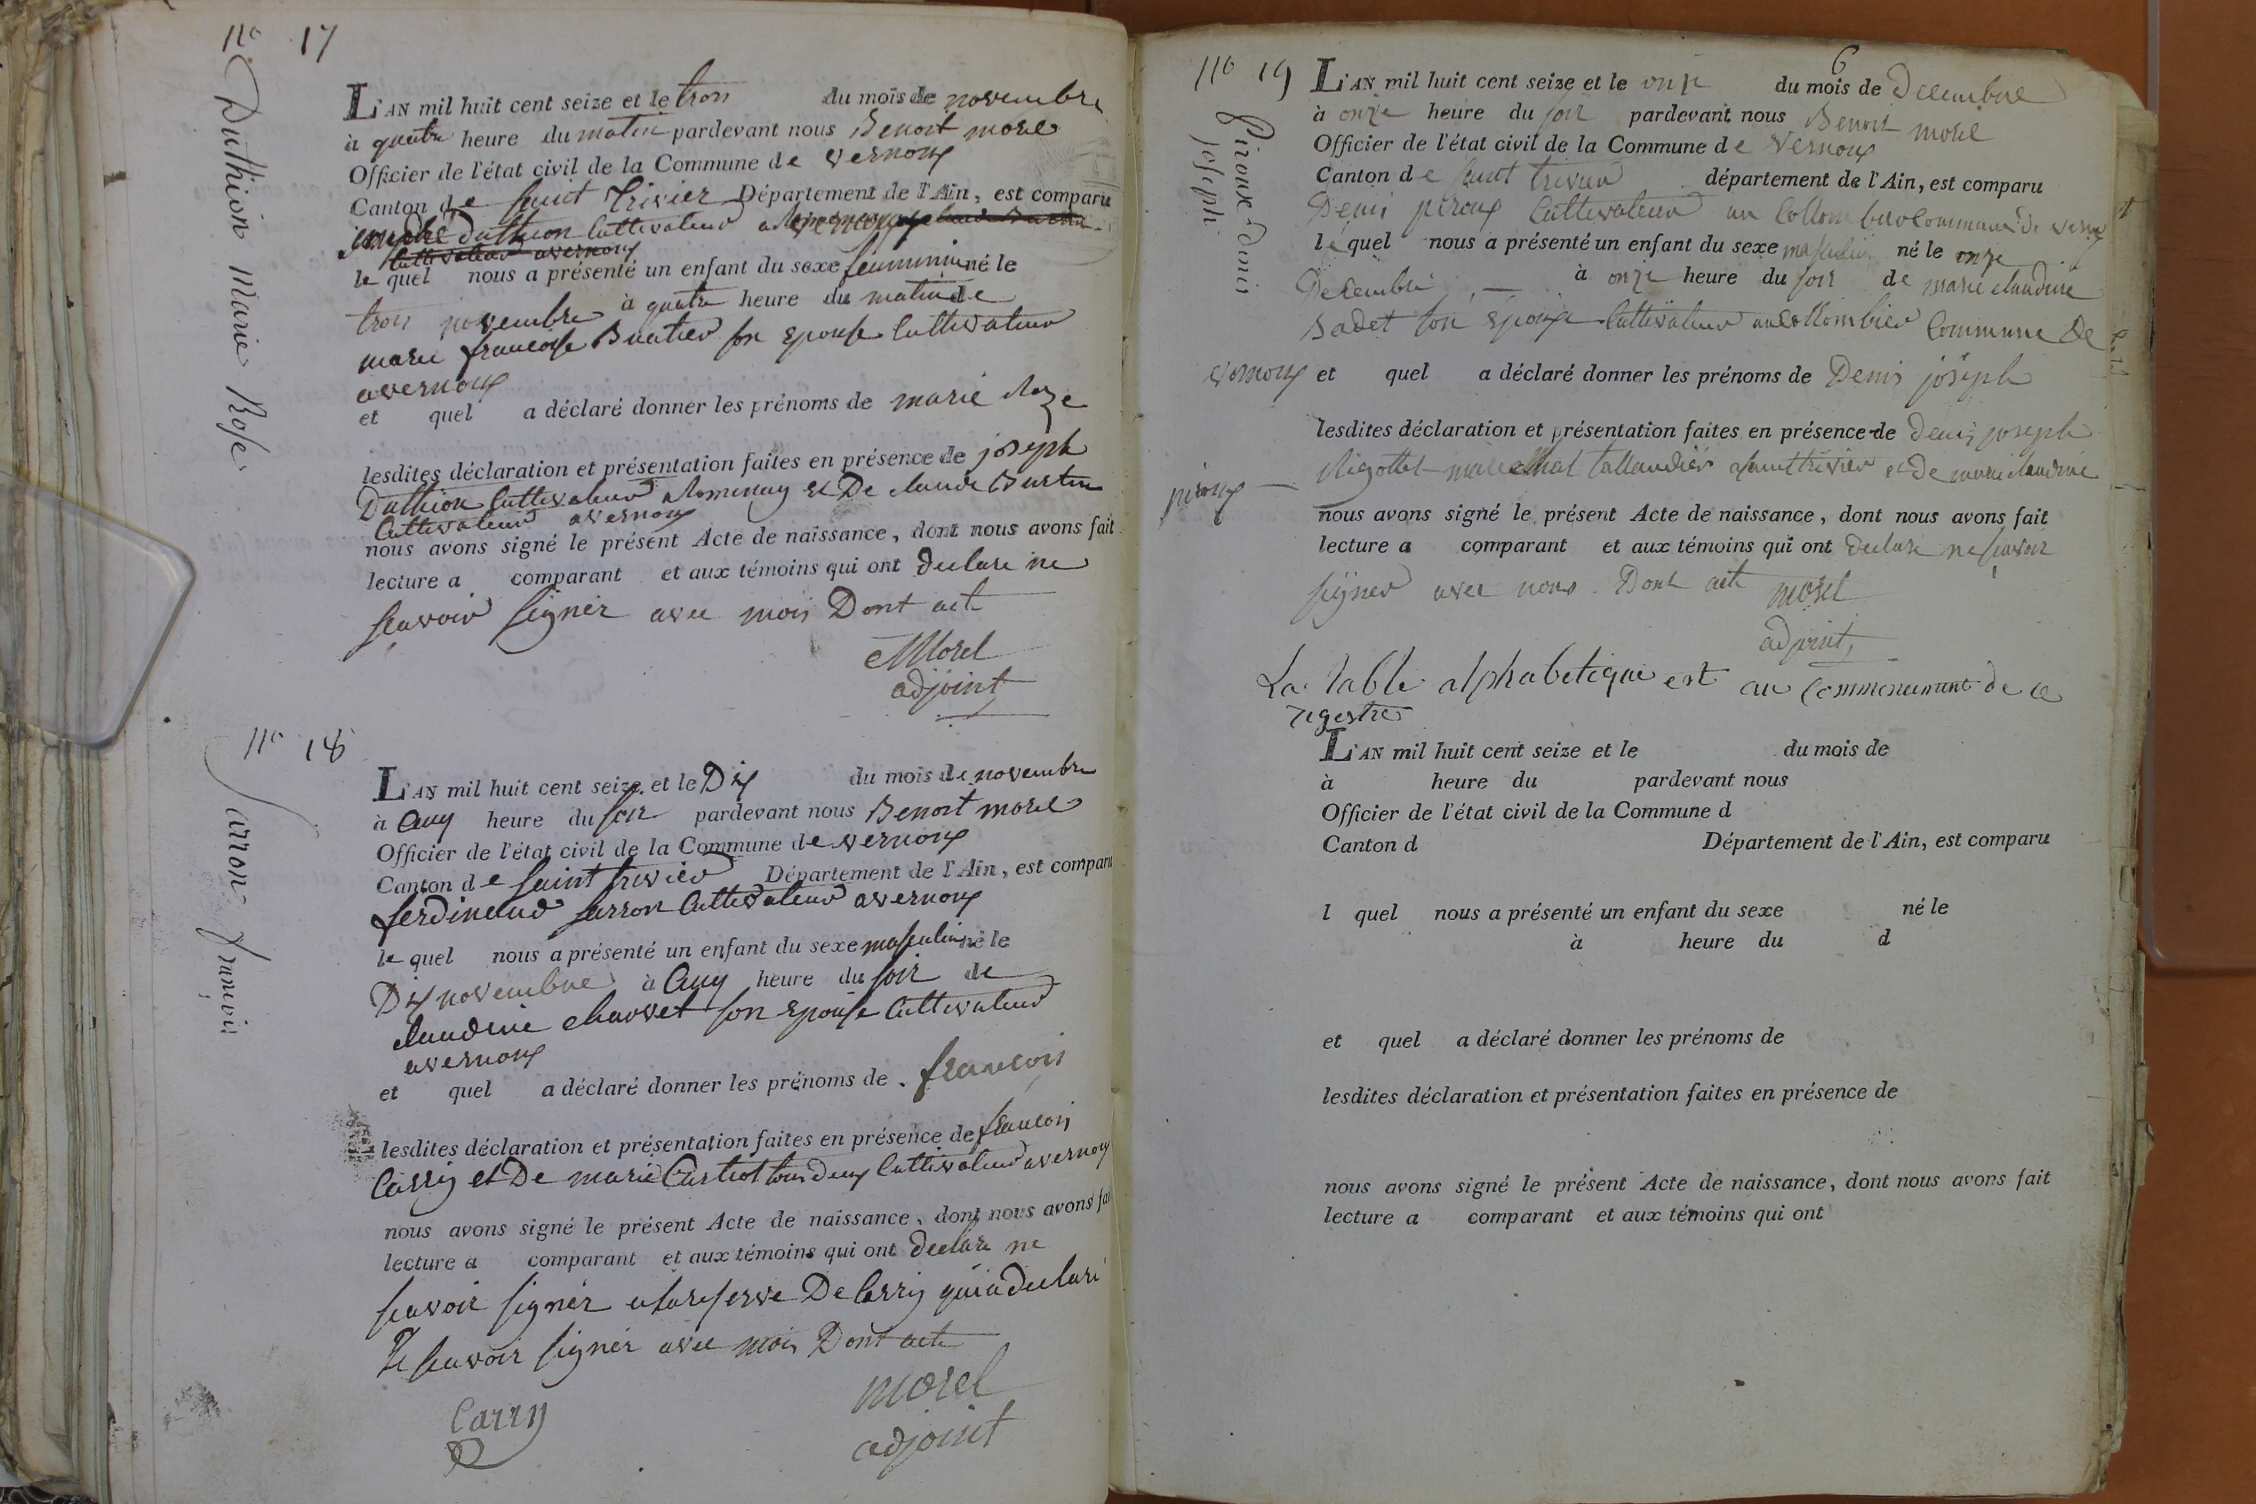 n° 17
Duthion Marie Rose
L'AN mil huit cent seize et le trois du mois de novembre
à quatre heure du matin pardevant nous Benoit morel
Officier de l'état civil de la Commune de vernoux
Canton de saint Trivier Département de l'Ain, est comparu
Duthion Cultivateur
Cultivateur avernoux
le quel nous a présenté un enfant du sexe feminin né le
trois novembre à quatre heure du matin de
marie francoise Buatier son epouse Cultivateur
avernoux
et quel a déclaré donner les prénoms de marie Roze
lesdites déclaration et présentation faites en présence de joseph
Duthion Cultivateur a Romenay et De claude Burtin
Cultivateur avernoux
nous avons signé le présent Acte de naissance, dont nous avons fait
lecture a comparant et aux témoins qui ont declare ne
scavoir signer avec mois Dont acte
Morel
adjoint
n° 18
Sarron francois
L'AN mil huit cent seize et le Dix du mois de novembre
à Cinq heure du soir pardevant nous Benoit morel
Officier de l'état civil de la Commune de vernoux
Canton de saint trivier Département de l'Ain, est comparu
ferdinand sarron Cultivateur avernoux
le quel nous a présenté un enfant du sexe masculin né le
Dix novembre à Cinq heure du soir de
claudine chauvet son epouse Cultivateur
avernoux
et quel a déclaré donner les prénoms de francois
lesdites déclaration et présentation faites en présence de francois
Carry et De marie tous deux Cultivateur avernoux
nous avons signé le présent Acte de naissance, dont nous avons fai
lecture a comparant et aux témoins qui ont declare ne
scavoir signer a la reserve De Carry qui a declare
le scavoir signer avec mois Dont acte
Carry
morel
adjoint
6
n° 19
Piroux denis
joseph
L'AN mil huit cent seize et le onze du mois de Decembre
à onze heure du soir pardevant nous Benoit morel
Officier de l'état civil de la Commune de Vernoux
Canton de saint trivier département de l'Ain, est comparu
Denis piroux Cultivateur au Collombier Commune de vernoux
le quel nous a présenté un enfant du sexe masculin né le onze
Decembre à onze heure du soir de marie claudine
Badet son epouse Cultivateur au Collombier Commune De
vernoux et quel a déclaré donner les prénoms de Denis joseph
lesdites déclaration et présentation faites en présence de denis joseph
Rigottet marechal tallandier a saint trivier et de marie claudine
piroux
nous avons signé le présent Acte de naissance, dont nous avons fait
lecture a comparant et aux témoins qui ont declare ne scavoir
signer avec nous Dont acte morel
adjoint
La table alphabetique est au Commencement de ce
regestre
L'AN mil huit cent seize et le du mois de
à heure du pardevant nous
Officier de l'état civil de la Commune d
Canton d Département de l'Ain, est comparu
l quel nous a présenté un enfant du sexe né le
à heure du d
et quel a déclaré donner les prénoms de
lesdites déclaration et présentation faites en présence de
nous avons signé le présent Acte de naissance, dont nous avons fait
lecture a comparant et aux témoins qui ont